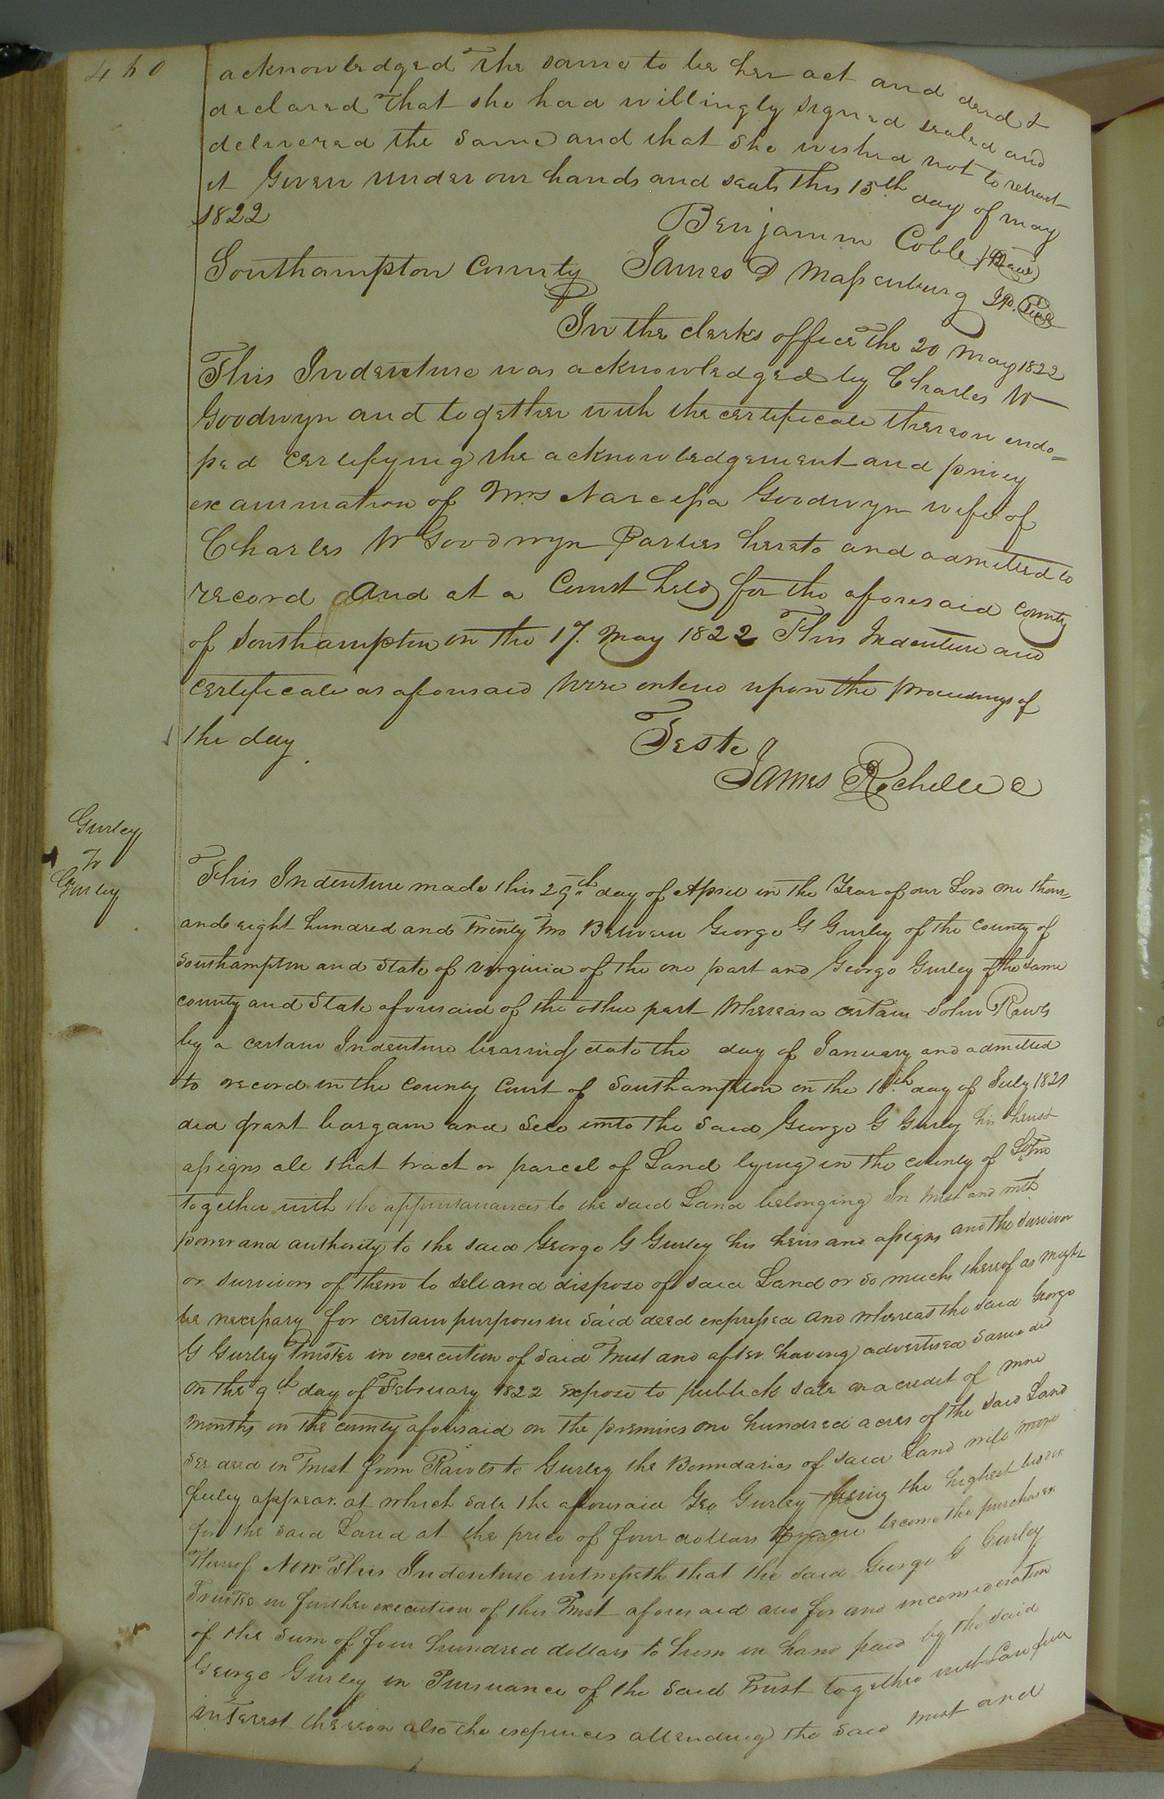 460
acknowledged the same to be her act and deed &
declared that she had willingly signed sealed and
delivered the same and that she wished not to retract
it Given under our hands and seals this 15th day of may
1822
Benjamin Coble
Southampton County James D Massenburg J.P. Seal
In the clerks office the 20 May 1822
This Indenture was acknowledged by Charles W
Goodwyn and together with the certificate thereon endo=
sed certifying the acknowledgement and privy
examination of Mrs Narcissa Goodwyn wife of
Charles W Goodwyn Parties hereto and admitted to
record And at a Court held for the aforesaid county
of Southampton on the 17. May 1822 This Indenture and
certificate as aforesaid were entered upon the proceedings of
the day.
Teste
James Rochelle C
Gurley
To
Gurley
This Indenture made this 29th day of April in the Year of our Lord one thous=
and eight hundred and Twenty Two Between George G Gurley of the County of
Southampton and State of Virginia of the one part and George Gurley of the same
county and State aforesaid of the other part Whereas a certain John Rawls
by a certain Indenture bearing date the day of January and admitted
to record in the County Court of Southampton on the 18th day of July 1821
did grant bargain and Sell unto the said George G Gurley his heirs
assigns all that tract or parcel of Land lying in the county of Sotn
together with the appurtenances to the said Land belonging In trust and with
power and authority to the said George G Gurley his heirs and assigns and the survivor
or survivors of them to sell and dispose of said Land or so much thereof as might
be necessary for certain purposes in said deed expressed and whereas the said George
G Gurley Trustee in execution of said Trust and after having advertised same did
on the 9th day of February 1822 expose to publick sale on a credit of nine
months in the county aforesaid on the premises one hundred acres of the said Land
see deed in Trust from Rawls to Gurley the Boundaries of said Land will more
fully appear at which sale the aforesaid Geo Gurley being the highest bidder
for the said Land at the price of four dollars become the purchaser
Thereof Now This Indenture witnesseth that the said George G Gurley
Trustee in further execution of this Trust aforesaid and for and in consideration
of the sum of four hundred dollars to him in hand paid by the said
George Gurley in Pursuance of the said Trust together with Lawfull
interest thereon also the expences attending the said trust and